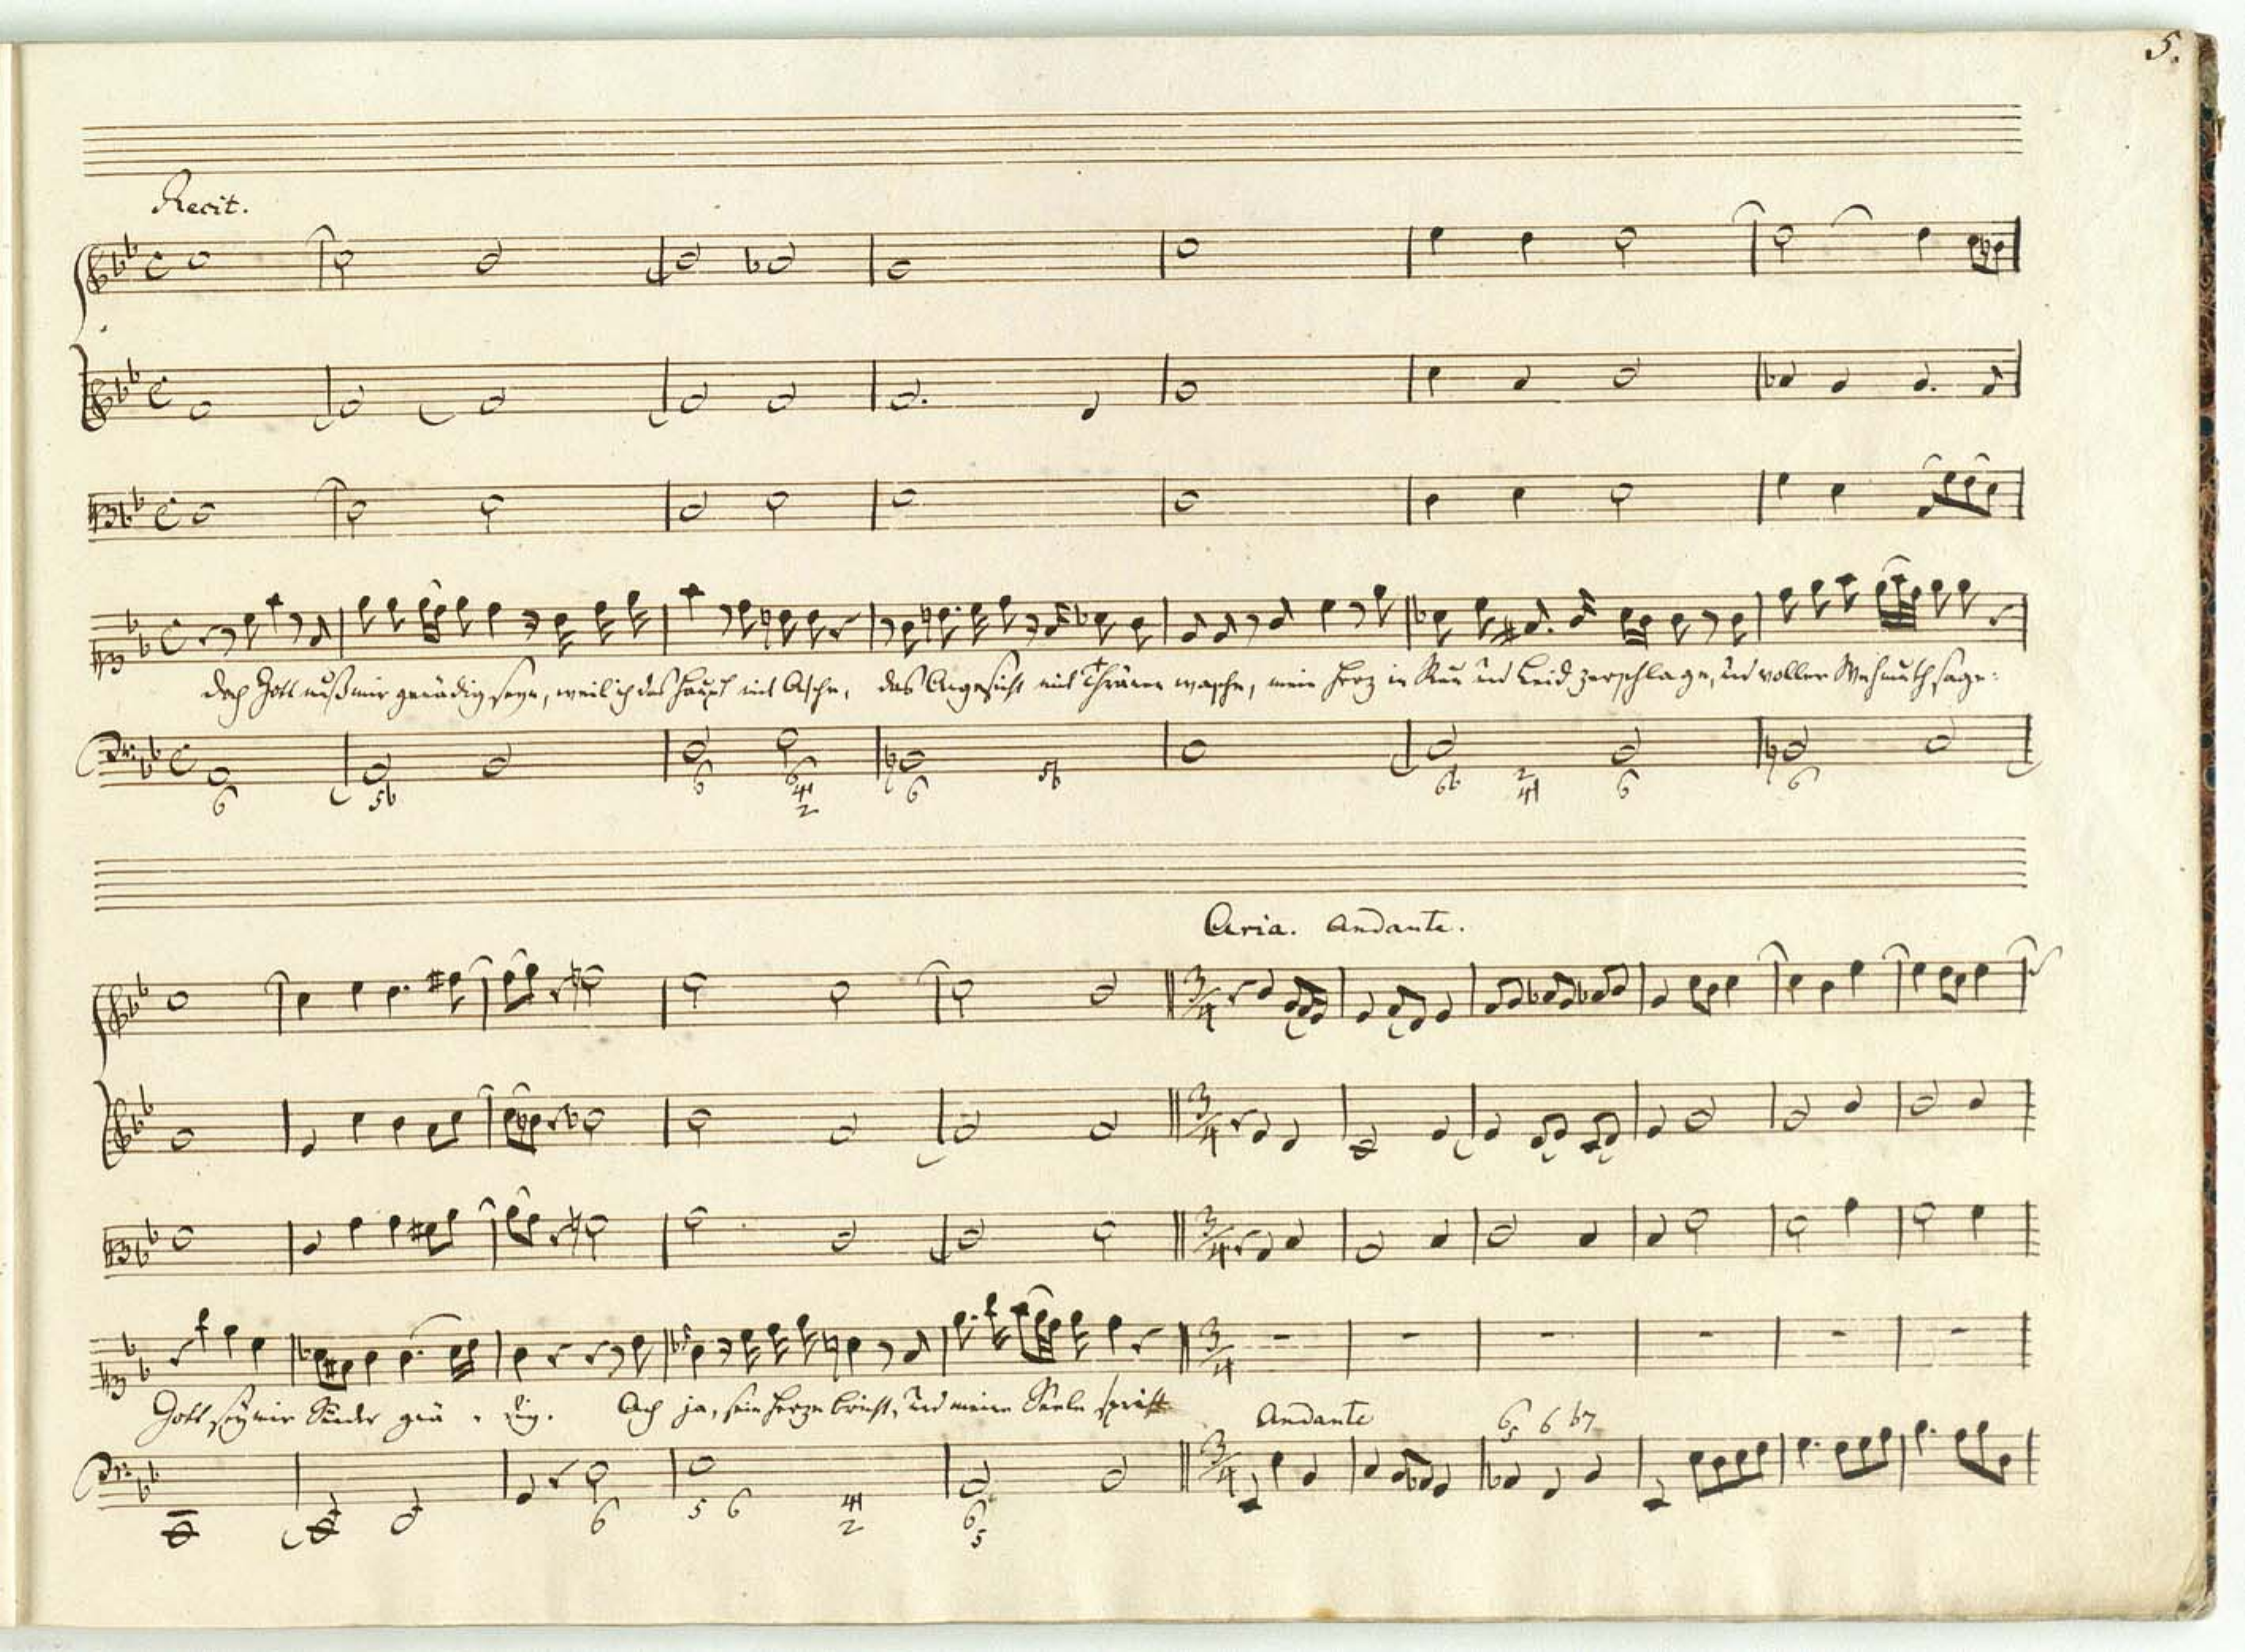 5.
Recit.
doch Gott muß mir genädig seyn, weil ich das Haupt mit Asche, das Angesicht mit Thränen wasche, mein Herz in Reu und Leid zerschlage, und voller Wehmuth sage:
6 5b 6 6 4 2 6 5b 6b 2 4 6 6
Aria. Andante.
3/4
Gott sey mir Sünder gnä - dig. Ach ja, sein Herze bricht, und meine Seele spricht
Andante
6 5 6 b7
6 5 6 4 2 6 5